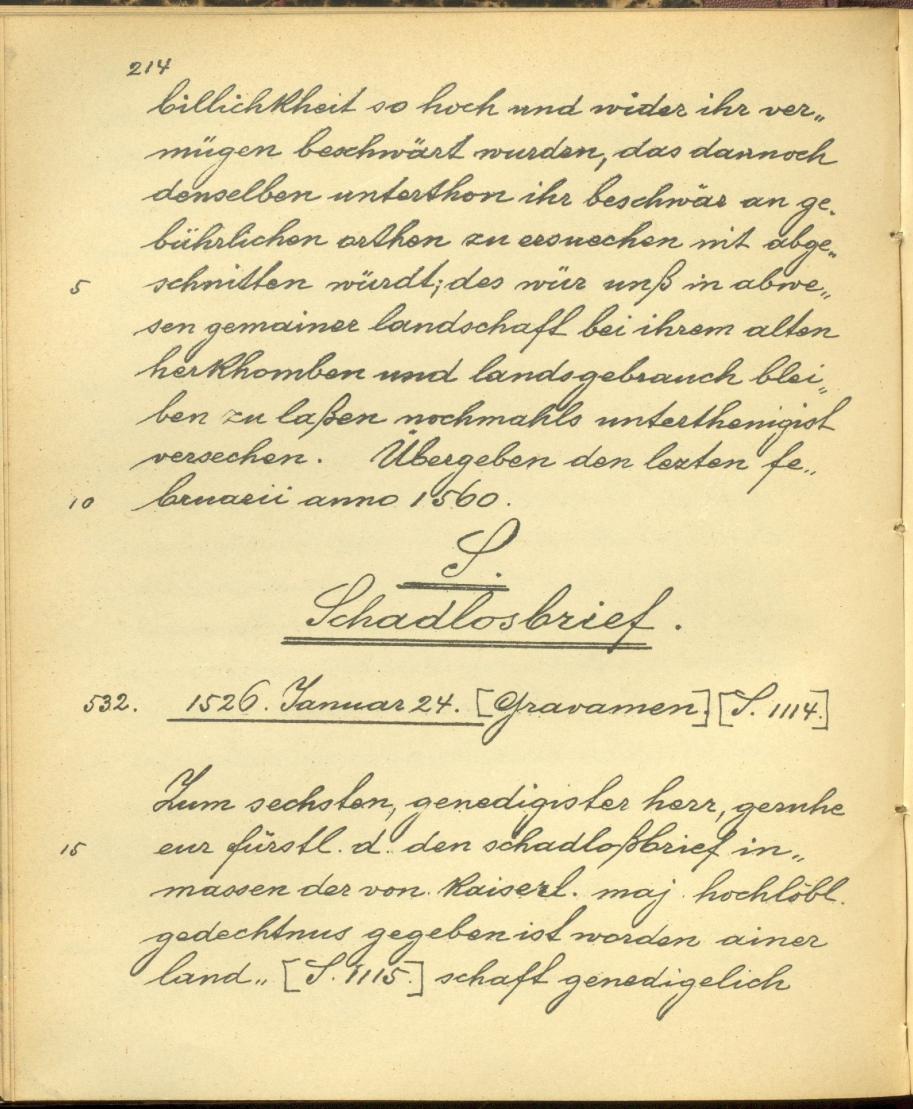 214
billichkheit so hoch und wider ihr ver„
mügen beschwärt wurden, das dannoch
denselben unterthon ihr beschwär an ge„
bührlichen orthen zu ersuechen nit abge„
5 schnitten würdt; des wür unß in abwe„
sen gemainer landschaft bei ihrem alten
herkhomben und landsgebrauch blei„
ben zu laßen nochmahls unterthenigist
versechen. Übergeben den lezten fe„
10 bruarii anno 1560.
S.
Schadlosbrief.
532. 1526. Januar 24. [Gravamen] [S. 1114.]
Zum sechsten, genedigister herr, geruhe
15 eur fürstl. d. den schadloßbrief in„
massen der von kaiserl. maj. hochlöbl.
gedechtnus gegeben ist worden ainer
land„ [S. 1115.] schaft genedigelich